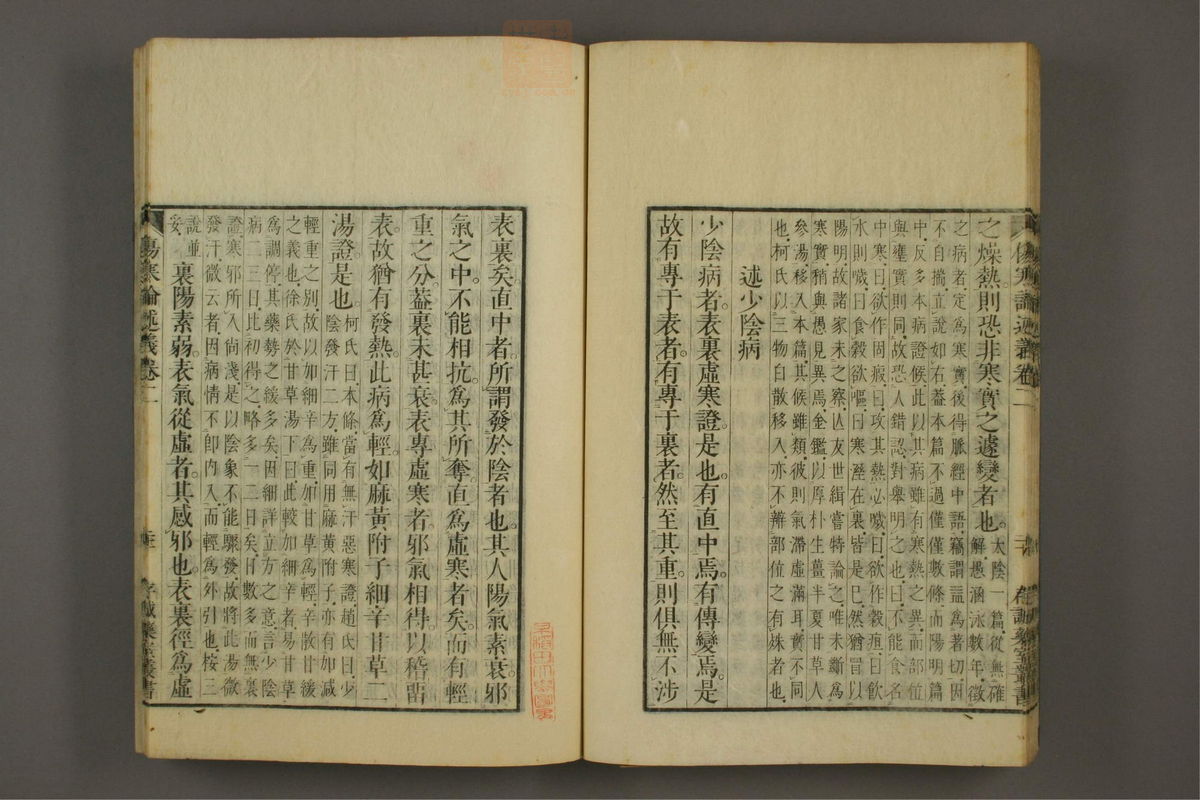 之燥熱則恐非寒實之遽變者也。太陰一篇從無確
解愚涵泳數年徵
之病者定爲寒實後得脈經中語竊謂諡爲著切因
不自揣立說如右蓋本篇不過僅僅數條而陽明篇
中反多本病證候此以其病雖有寒熱之異而部位
與壅實則同故恐人錯認對舉明之也曰不能食名
中寒曰欲作固瘕曰攻其熱必噦曰欲作穀疸曰飲
水則噦曰食穀欲嘔曰寒溼在裏皆是已然猶冒以
陽明故諸家未之察亾友世緝嘗特論之唯未斷爲
寒實稍與愚見異焉金鑑以厚朴生薑半夏甘草人
參湯移入本篇其候雖類彼則氣滯虛滿耳實不同
也柯氏以三物白散移入亦不辨部位之有殊者也
述少陰病
少陰病者。表裏虛寒證。是也。有直中焉。有傳變焉。是
故有專于表者。有專于裏者。然至其重。則俱無不涉
傷寒論述義卷二
存誠藥室叢書
表裏矣。直中者。所謂發於陰者也。其人陽氣素衰。邪
氣之中。不能相抗。爲其所奪。直爲虛寒者矣。而有輕
重之分。蓋裏未甚衰。表專虛寒者。邪氣相得。以稽留
表。故猶有發熱。此病爲輕。如麻黃附子細辛甘草二
湯證。是也。柯氏曰本條當有無汗惡寒證趙氏曰少
陰發汗二方雖同用麻黃附子亦有加減
輕重之別故以加細辛爲重加甘草爲輕辛散甘緩
之義也徐氏於甘草湯下曰此較加細辛者易甘草
爲調停其藥勢之緩多矣因細詳立方之意言少陰
病二三日比初得之略多一二日矣日數多而無裏
證寒邪所入尙淺是以陰象不能驟發故將此湯微
發汗微云者因病情不卽內入而輕爲外引也桉三
說並
妥 裏陽素弱。表氣從虛者。其感邪也。表裏徑爲虛
傷寒論述義卷二
存誠藥室叢書